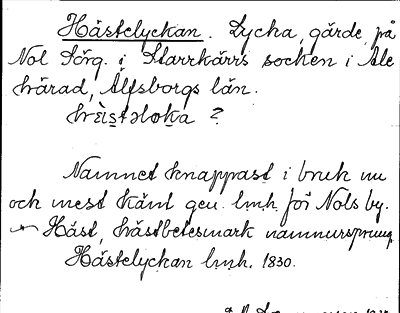 Hästelyckan. Lycka, gärde på
Nol Sörg. i Starrkärrs socken i Ale
härad, Älfsborgs län.
hɛ̀i̯stəlok̯a ?
Namnet knappast i bruk nu
och mest känt gen. lmh. för Nols by.
Häst, hästbetesmark namnursprung
Hästelyckan lmh. 1830.